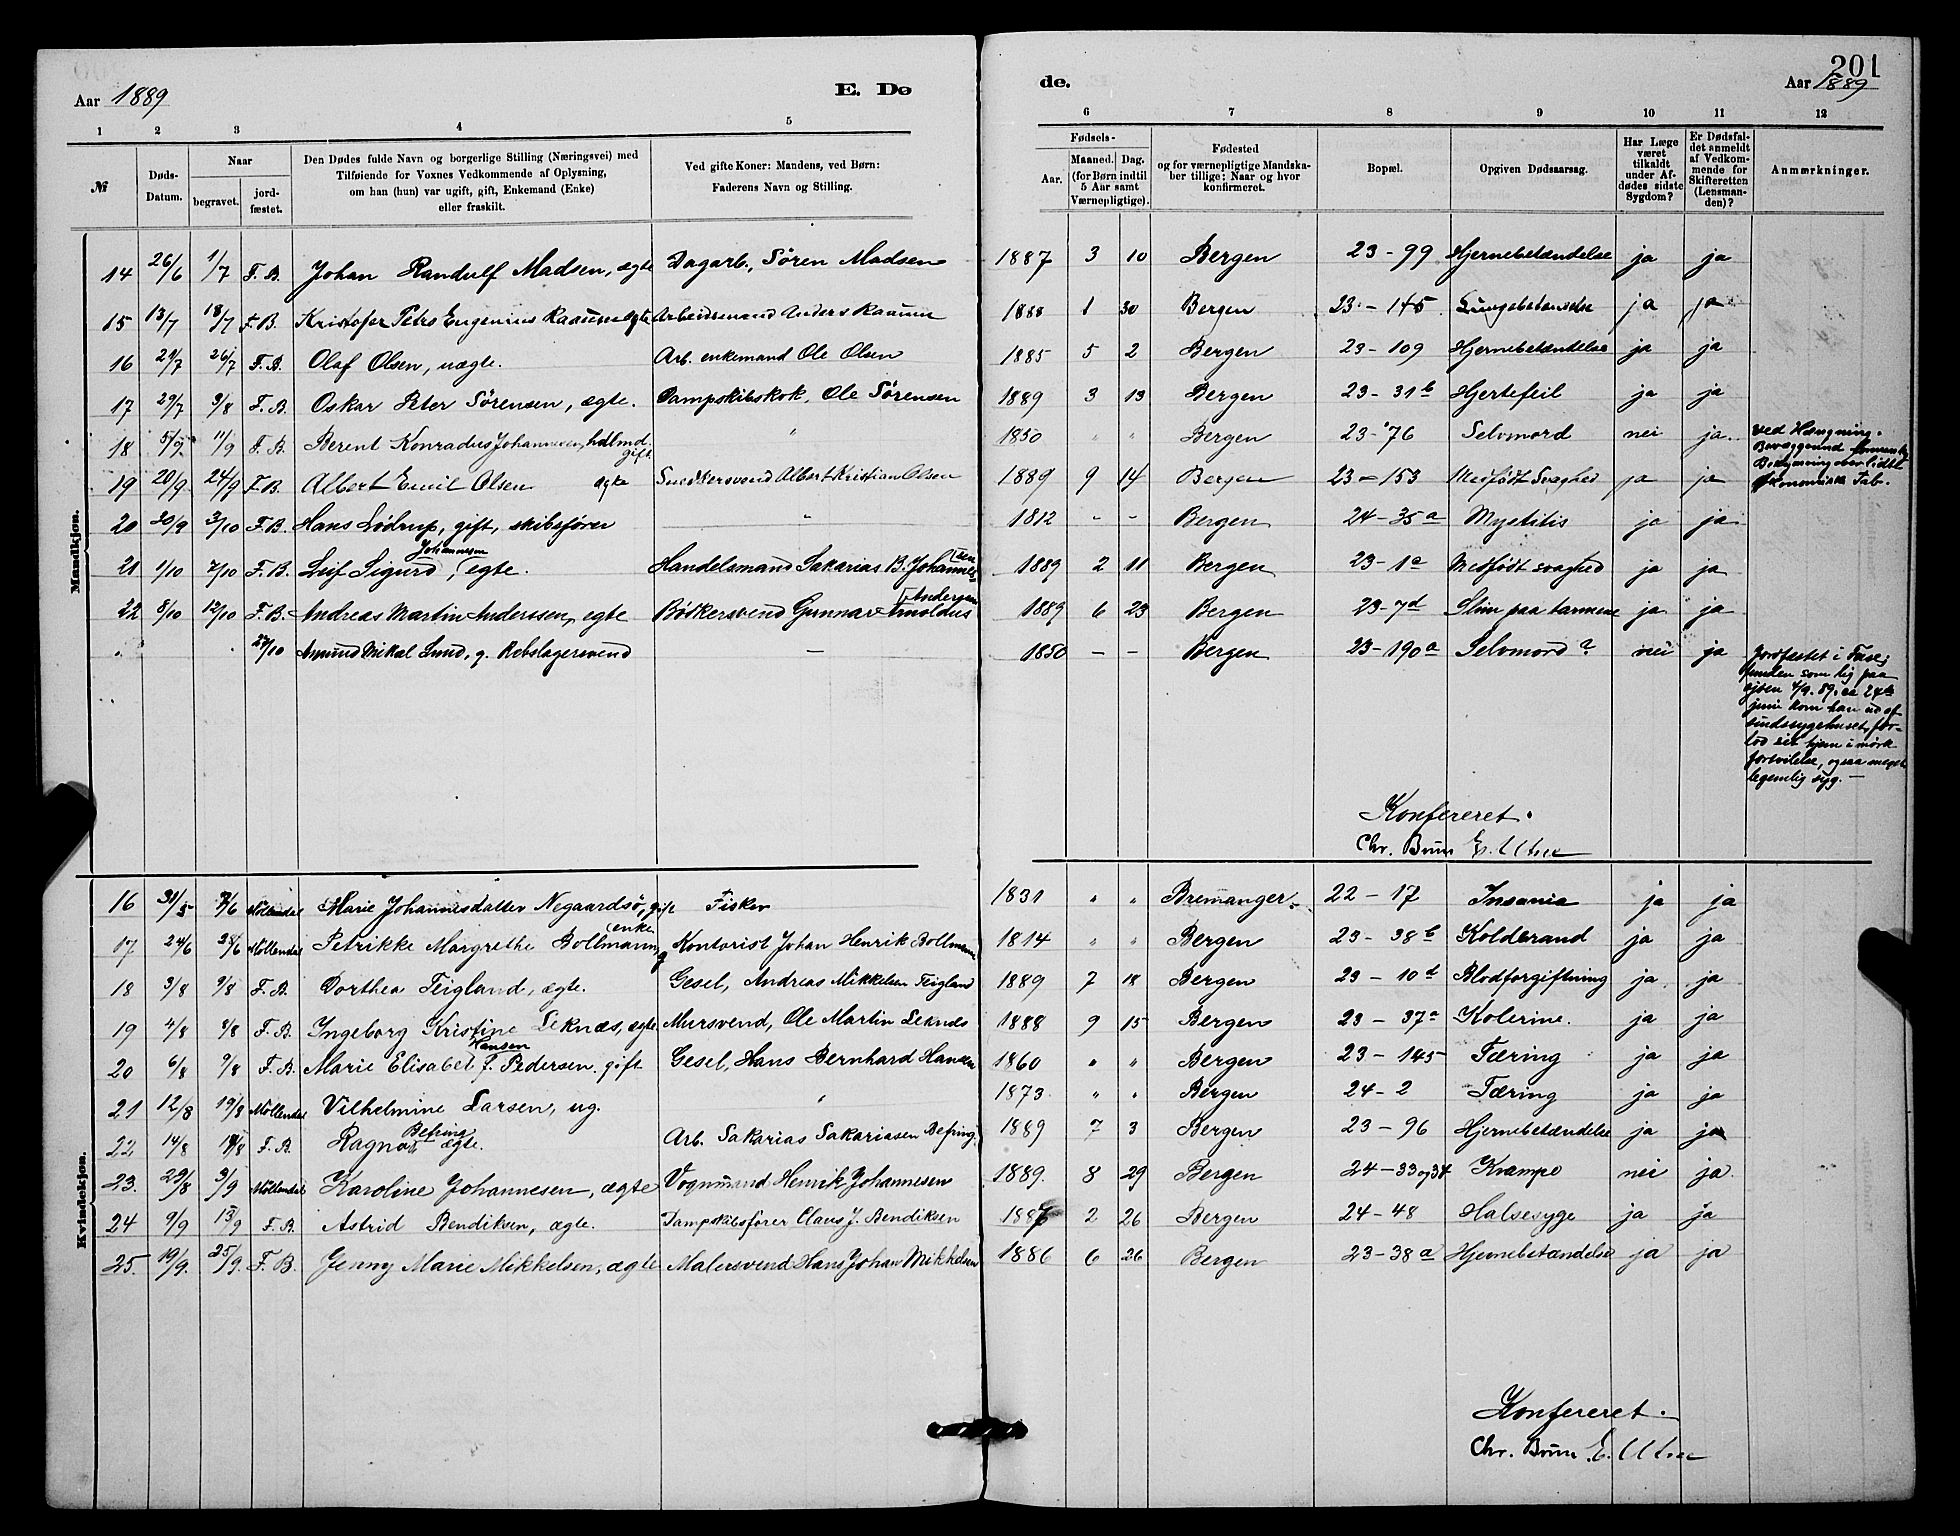 201
Aar 1889 E. Dø de. Aar 1889
1 2 3 4 5 6 7 8 9 10 11 12
№ Døds-Datum. Naar begravet. jord-fæstet. Den Dødes fulde Navn og borgerlige Stilling (Næringsvei) med Tilføiende for Voxnes Vedkommende af Oplysning, om han (hun) var ugift, gift, Enkemand (Enke) eller fraskilt. Ved gifte Koner: Mandens, ved Børn: Faderens Navn og Stilling. Fødsels- Aar. Maaned. Dag. (for Børn indtil 5 Aar samt Værnepligtige). Fødested og for værnepligtige Mandska-ber tillige: Naar og hvor konfirmeret. Bopæl. Opgiven Dødsaarsag. Har Læge været tilkaldt under Af-dødes sidste Sygdom? Er Dødsfal-det anmeldt af Vedkom-mende for Skifteretten (Lensman-den)? Anmærkninger.
Mandkjøn.
14 26/6 1/7 F.B. Johan Randulf Madsen, ægte Dagarb., Sören Madsen 1887 3 10 Bergen 23-99 Hjernebetændelse ja ja
15 13/7 18/7 F.B. Kristofer Petrs Eugenius Raaum ægte Arbeidsmand Anders Raaum 1888 1 30 Bergen 23-145 Lungebetændelse ja ja
16 21/7 26/7 F.B. Olaf Olsen, uægte. Arb. enkemand Ole Olsen 1885 5 2 Bergen 23-109 Hjernebetændelse ja ja
17 29/7 3/8 F.B. Oskar Peter Sørensen, ægte. Dampskibskok, Ole Sørensen 1889 3 13 Bergen 23-31b Hjertefeil ja ja
18 5/9 11/9 F.B. Berent Konradus Johannesen, gift " 1850 " " Bergen 23-76 Selvmord nei ja. ved Hængning. Bevæggrund Bekymring over lidt økonomisk Tab.
19 20/9 24/9 F.B. Albert Emil Olsen ægte Snedkersvend Albert Kristian Olsen 1889 9 14 Bergen 23-153 Medfödt Svaghed ja ja
20 30/9 3/10 F.B. Hans Lödrup, gift, skibsförer " 1812 - - Bergen 24-35a Mystitis ja ja
21 1/10 7/10 F.B. Leif Sigurd Johannesen, ægte. Handelsmand Sakarias B. Johannessen 1889 2 11 Bergen 23-1a Medfödt svaghed ja ja
22 8/10 12/10 F.B. Andreas Martin Anderssen, ægte Bödkersvend Gunnar Arnoldus Andersen 1889 6 23 Bergen 23-7d Slim paa tarmene ja ja
27/10 Amund Mikal Lund, g. Rebslagersvend - 1850 - - Bergen 23-190a Selvmord? nei ja Jordfæstet i
funden som lig paa
sjöen 4/9. 89. 24de
juni kom han ud af
sindssygehuset, for-
lod sit hjem i mörk
fortvilelse, ogsaa meget
legemlig syg. -
Konfereret.
Chr. Brun E. Utne
Kvindekjøn.
16 31/5 Möllendal Marie Johannesdatter Negaardsö, gift Fisker 1831 " " Bremanger. 22-17 Insania ja ja
17 24/6 28/6 Möllendal Petrikke Margrethe Bollmann, enke Kontorist Johan Henrik Bollmann 1814 " " Bergen 23-38b Koldbrand ja ja
18 3/8 9/8 F.B. Dorthea Teigland, ægte. Gesel, Andreas Mikkelsen Teigland 1889 7 18 Bergen 23-10d Blodforgiftning ja ja
19 4/8 8/8 F.B. Ingeborg Kristine Leknæs, ægte Mursvend, Ole Martin Leknæs 1888 9 15 Bergen 23-37a Kolerine. ja ja
20 6/8 9/8 F.B. Marie Elisabet Hansen f. Pedersen. gift Gesel, Hans Bernhard Hansen 1860 " " Bergen 23-145 Tæring ja ja
21 12/8 19/8 Möllendal Vilhelmine Larsen, ug. " 1873 " " Bergen 24-2 Tæring ja ja
22 14/8 18/8 F.B. Ragna Befring ægte. Arb. Sakarias Sakariasen Befring. 1889 7 3 Bergen 23-96 Hjernebetændelse ja ja
23. 29/8 3/9 Möllendal Karoline Johannesen, ægte Vognmand Henrik Johannesen 1889. 8 29 Bergen 24-33 og 34 Krampe nei ja
24 9/9 13/9 F.B. Astrid Bendiksen, ægte. Dampskibsförer Claus J. Bendiksen 2 26 Bergen 24-48 Halsesyge ja ja
25. 19/9. 25/9. F.B. Jenny Marie Mikkelsen, ægte Malersvend Hans Johan Mikkelsen 1886 6 26 Bergen 23-38a Hjernebetændelse ja ja
Konfereret.
Chr. Brun E. Utne